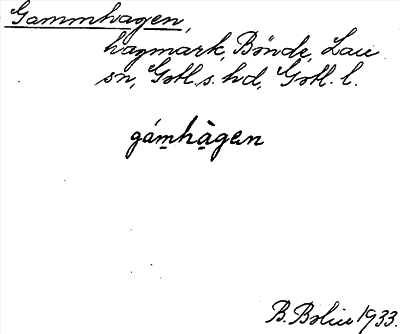 Gammhagen,
hagmark, Bönde, Lau
sn, Gotl. s. hd, Gotl. l.
gámhàgen
B. Bolin 1933.